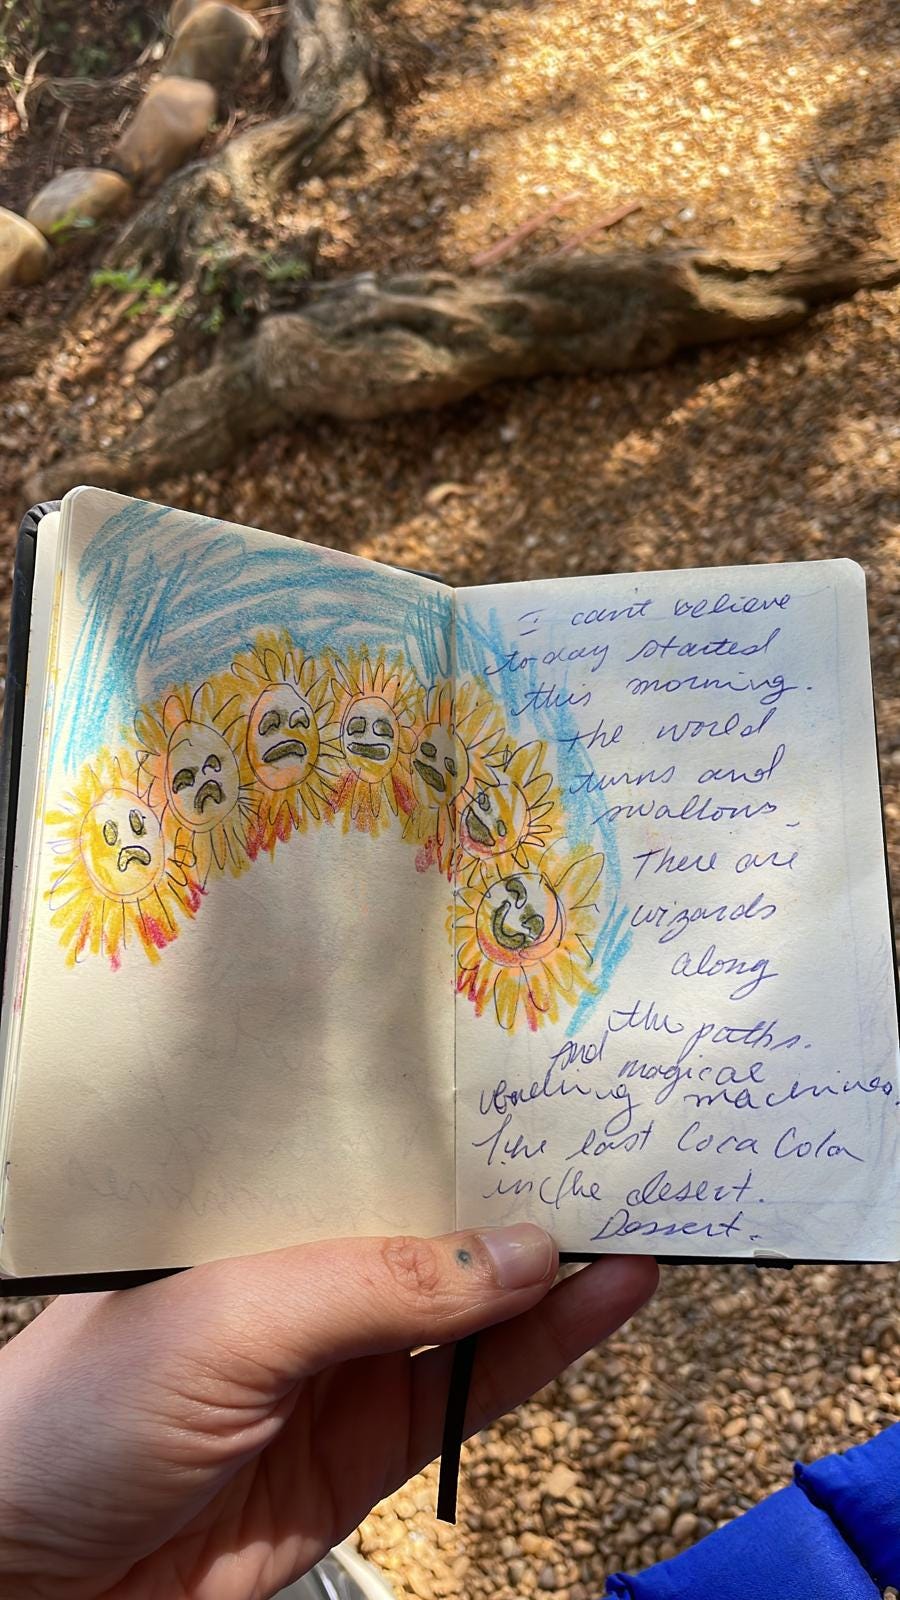 I can't believe
today started
this morning.
the world
turns and
swallows.
There are
wizards
along
the paths.
And magical
vending machines.
The last Coca Cola
in the desert.
Dessert.